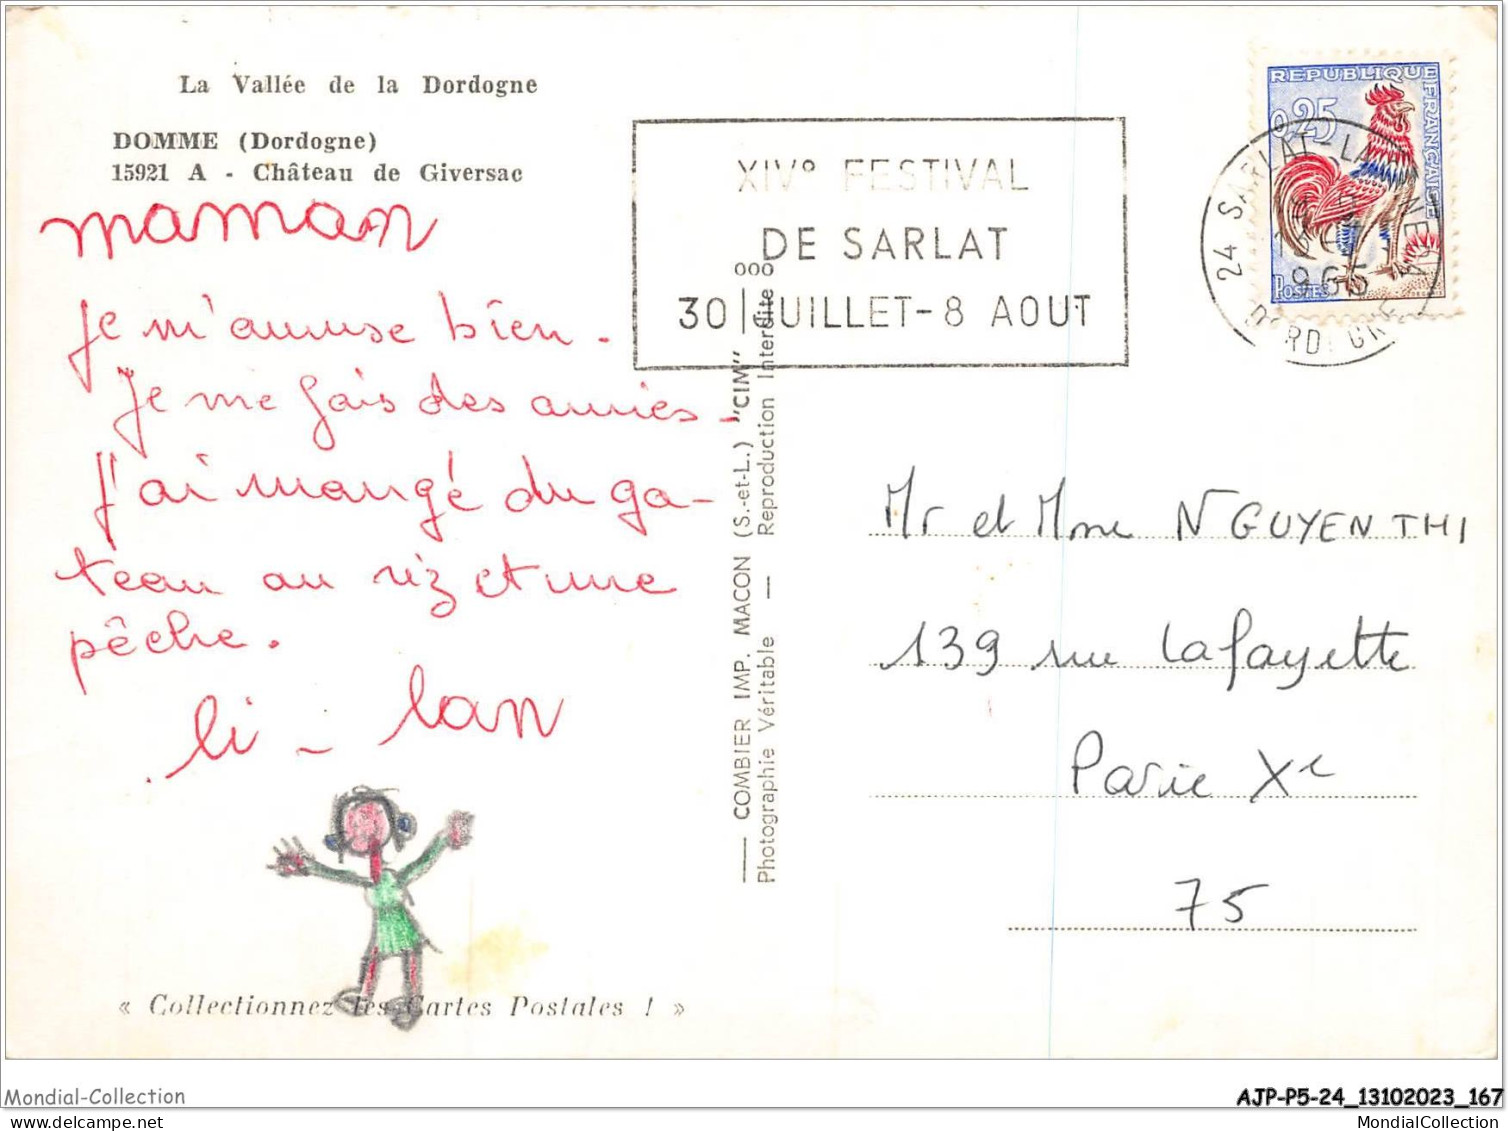 La Vallée de la Dordogne
DOMME (Dordogne)
15921 A - Château de Giversac
maman
je m'amuse bien.
Je me fais des amies.
J'ai mangé du ga-
teau au riz et une
pêche.
li - lan
« Collectionnez les Cartes Postales ! »
XIVº FESTIVAL
DE SARLAT
30 JUILLET-8 AOUT
COMBIER IMP. MACON (S.-et-L.) "CIM"
Photographie Véritable — Reproduction Interdite
REPUBLIQUE FRANÇAISE
0,25
POSTES
24 SARLAT-LA-CANEDA
1965
DORDOGNE
Mr et Mme NGUYEN THI
139 rue Lafayette
Paris Xe
75
Mondial-Collection
MondialCollection.com
AJP-P5-24_13102023_167
MondialCollection